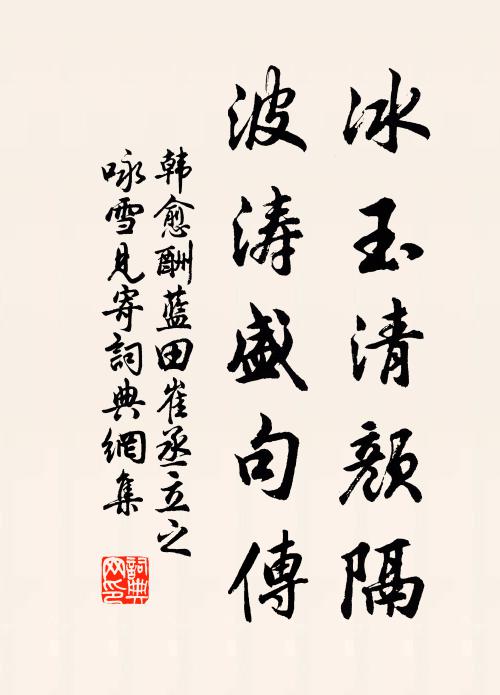 冰玉清颜隔
波涛盛句傳
韩愈酬蓝田崔丞立之
咏雪见寄詞典網集
詞典网印